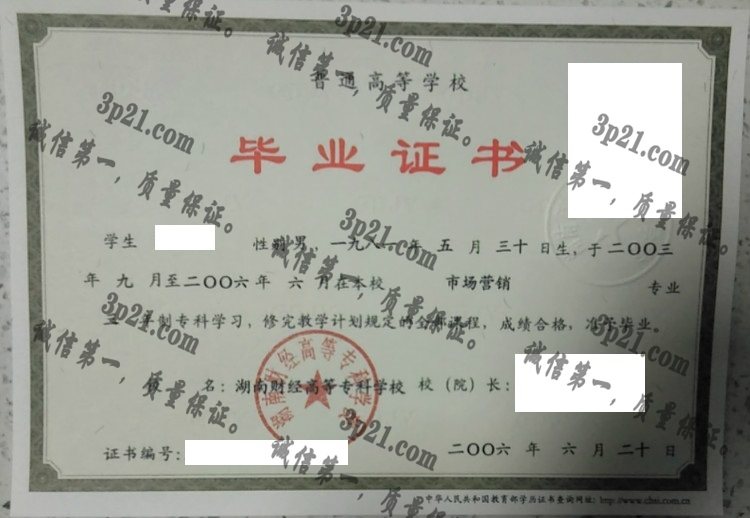 普通高等学校
毕业证书
学生 性别 男，一九八一年 五 月 三十 日生，于二〇〇三
年 九 月至二〇〇六年 六 月在本校 市场营销 专业
三 年制专科学习，修完教学计划规定的全部课程，成绩合格，准予毕业。
校 名：湖南财经高等专科学校 校（院）长：
证书编号： 二〇〇六 年 六 月 二十 日
中华人民共和国教育部学历证书查询网址：http://www.chsi.com.cn
湖南财经高等专科学校
3p21.com
诚信第一，质量保证。
3p21.com
诚信第一，质量保证。
3p21.com
诚信第一，质量保证。
3p21.com
诚信第一，质量保证。
3p21.com
诚信第一，质量保证。
3p21.com
诚信第一，质量保证。
3p21.com
诚信第一，质量保证。